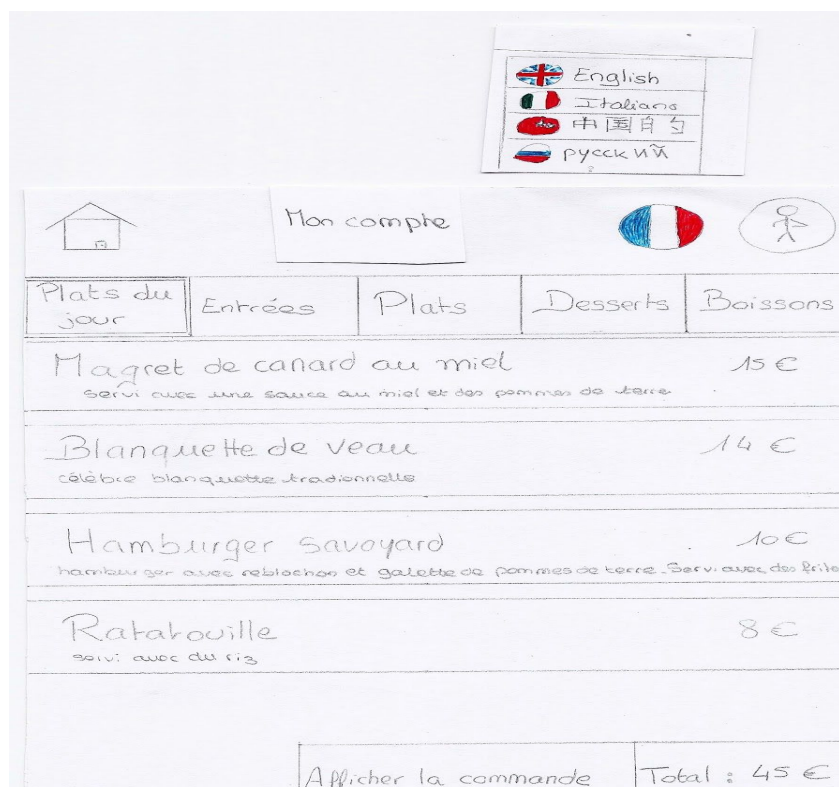 English
Italiano
中国自勺
русский
Mon compte
Plats du jour
Entrées
Plats
Desserts
Boissons
Magret de canard au miel 15 €
servi avec une sauce au miel et des pommes de terre
Blanquette de veau 14 €
célèbre blanquette tradionnelle
Hamburger savoyard 10 €
hamburger avec reblochon et galette de pommes de terre. Servi avec des frite
Ratatouille 8 €
servi avec du riz
Afficher la commande Total : 45 €